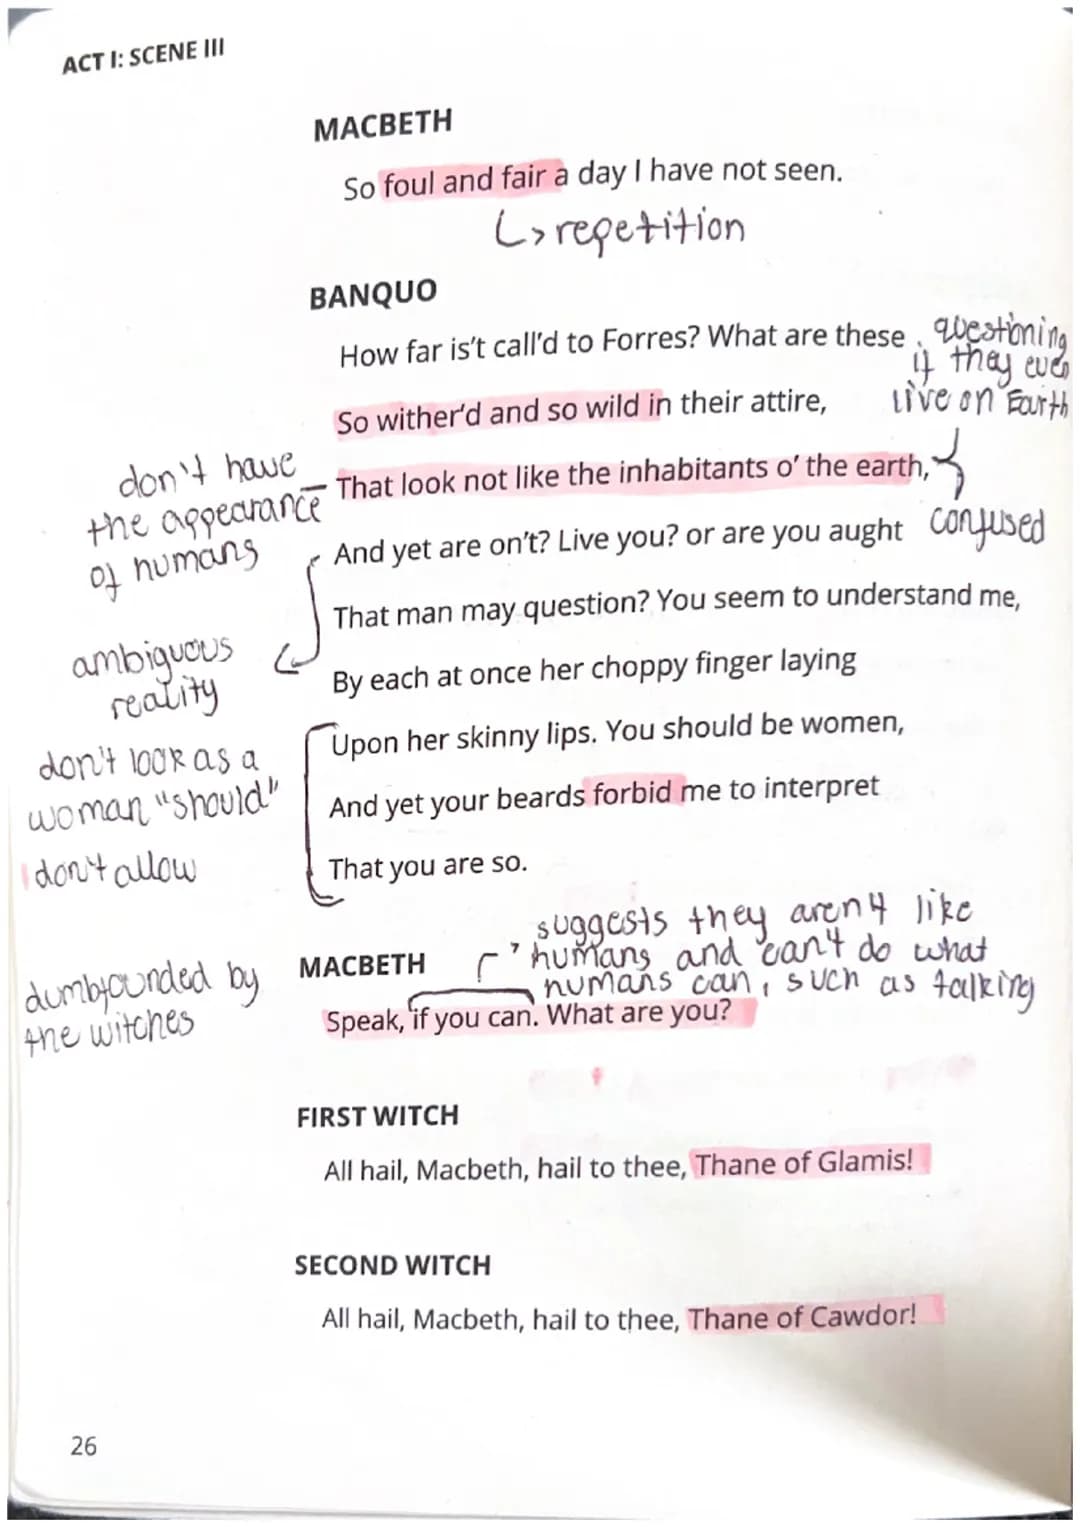 ACT I: SCENE III
MACBETH
So foul and fair a day I have not seen.
↳ repetition
BANQUO
How far is't call'd to Forres? What are these
questioning
if they even
live on Earth
So wither'd and so wild in their attire,
don't have
the appearance
of humans
That look not like the inhabitants o' the earth,
confused
And yet are on't? Live you? or are you aught
That man may question? You seem to understand me,
ambiguous
reality
By each at once her choppy finger laying
Upon her skinny lips. You should be women,
don't look as a
woman "should"
And yet your beards forbid me to interpret
don't allow
That you are so.
suggests they aren't like
humans and can't do what
humans can, such as talking
MACBETH
dumbfounded by
the witches
Speak, if you can. What are you?
FIRST WITCH
All hail, Macbeth, hail to thee, Thane of Glamis!
SECOND WITCH
All hail, Macbeth, hail to thee, Thane of Cawdor!
26